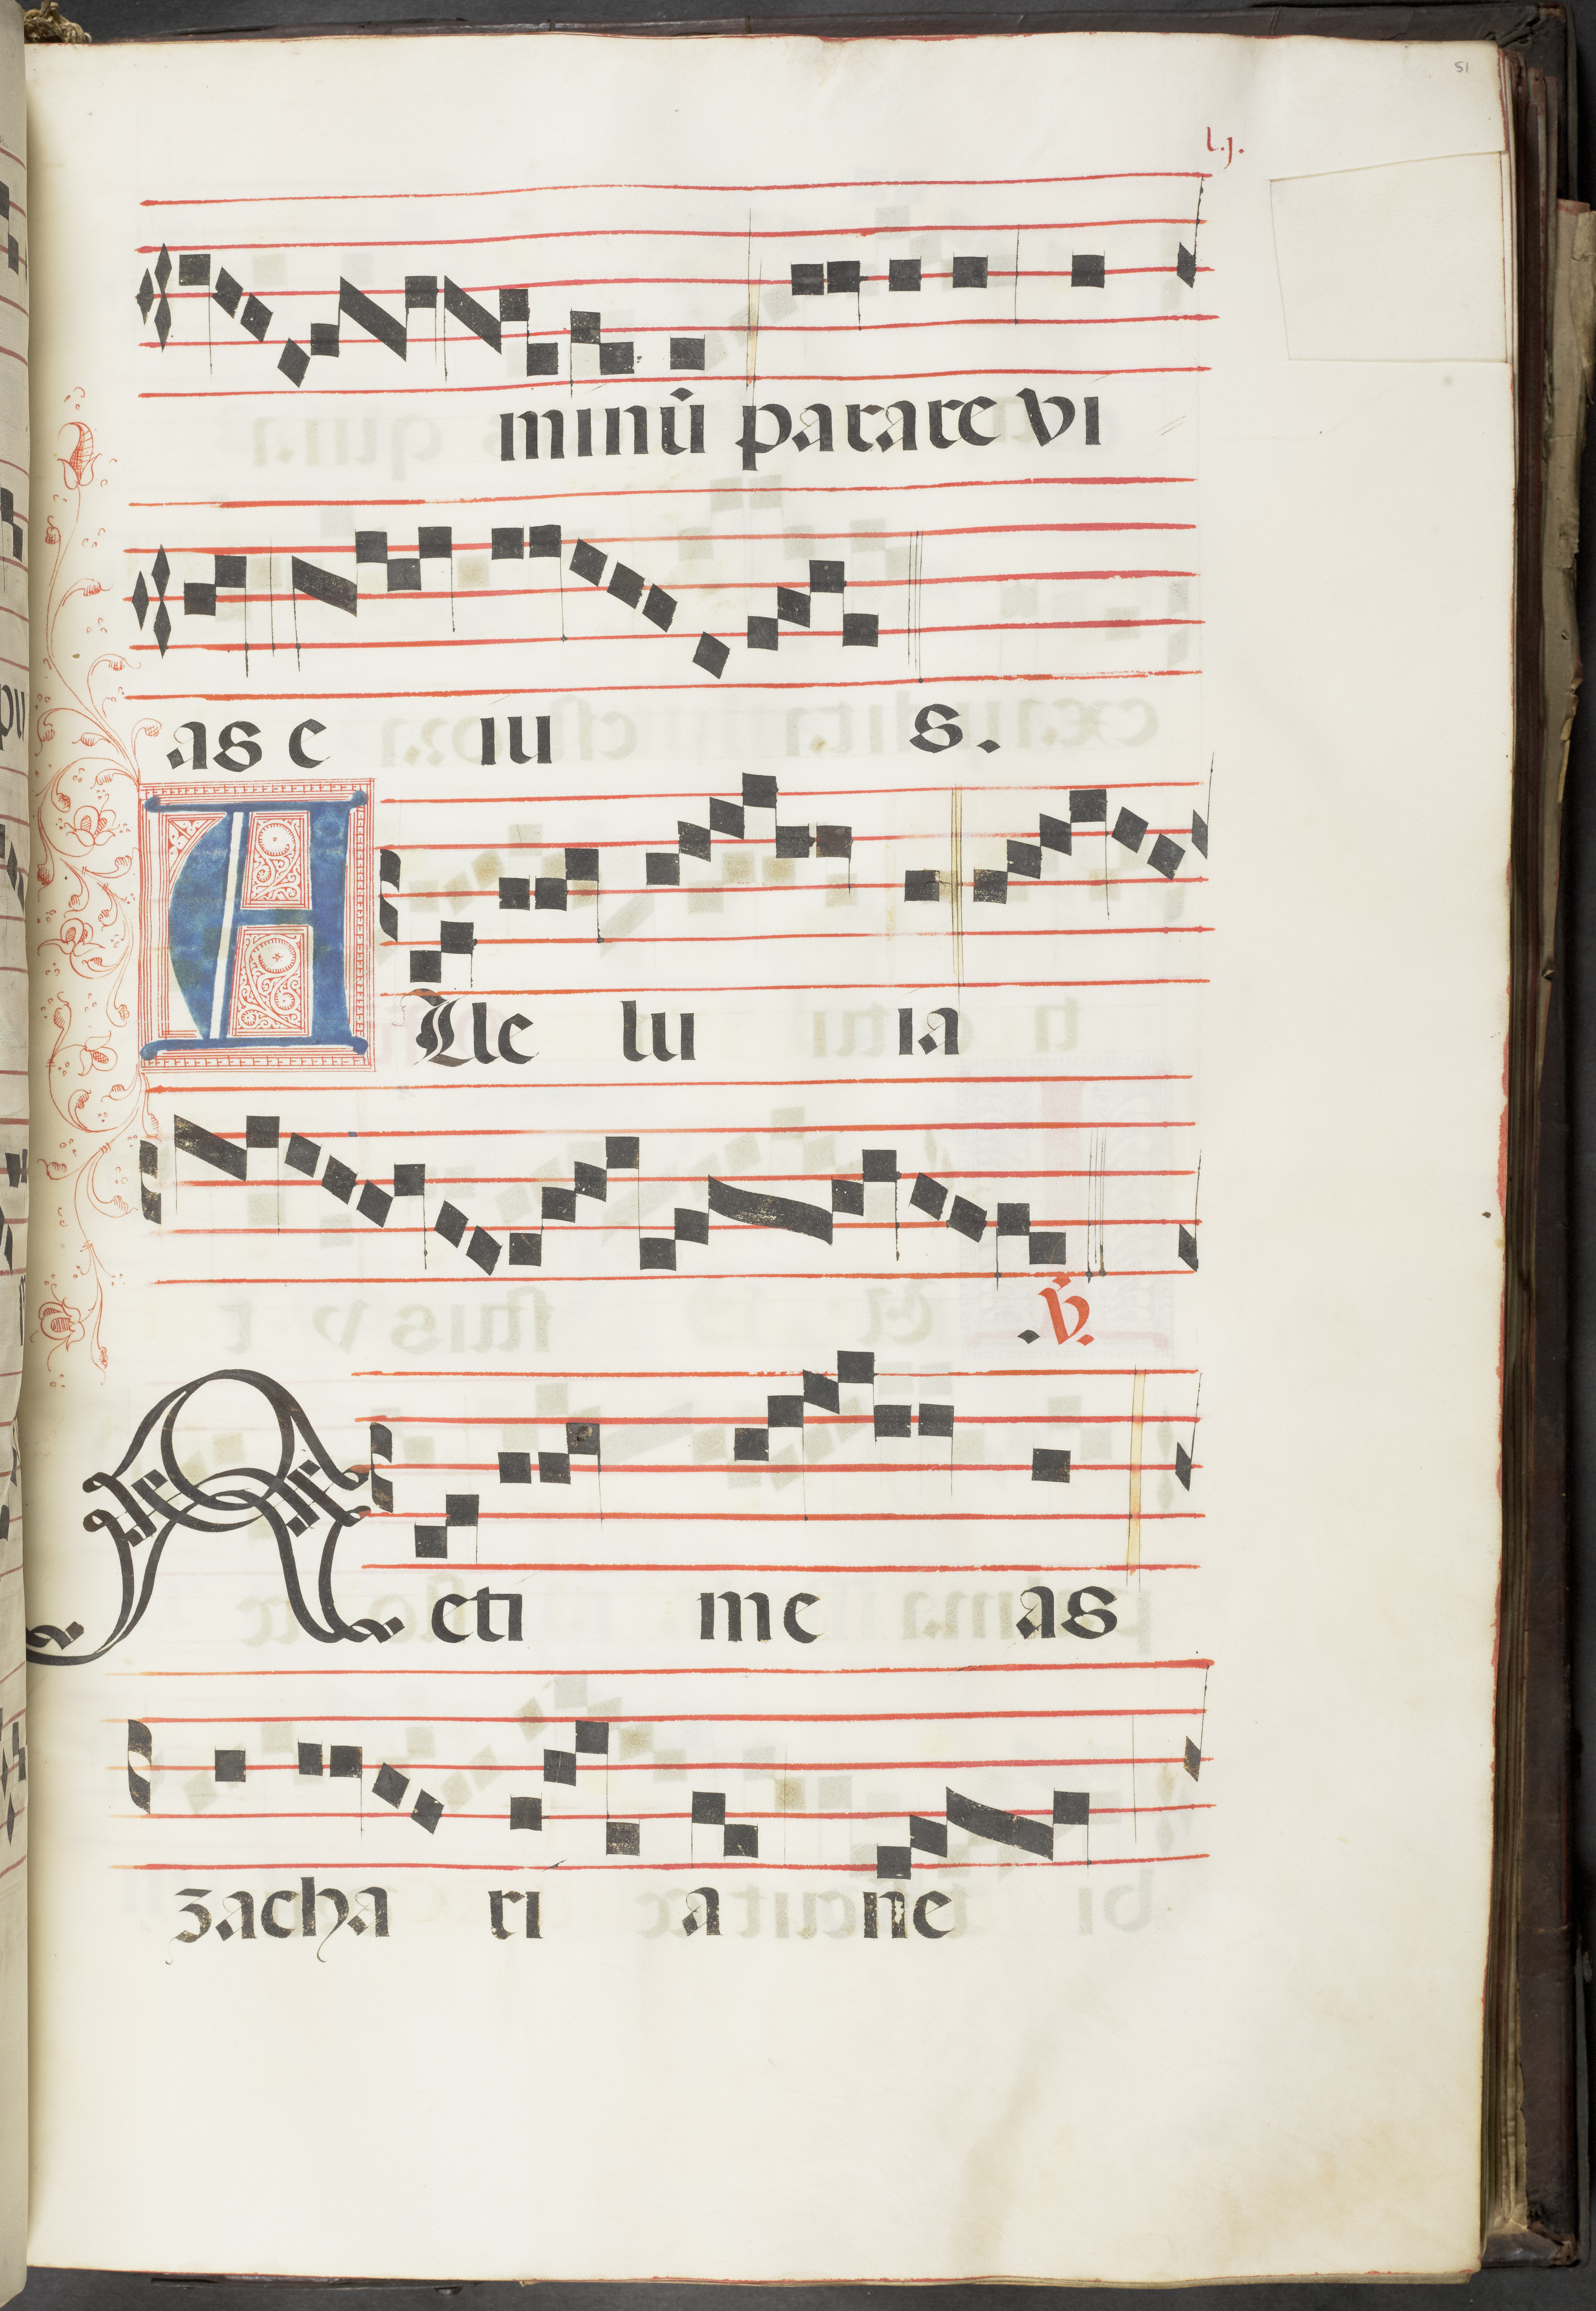 51
l.j.
minū parare vi
as e iu s.
Alle lu ia
.℣.
Ne ti me as
zacha ri a ne